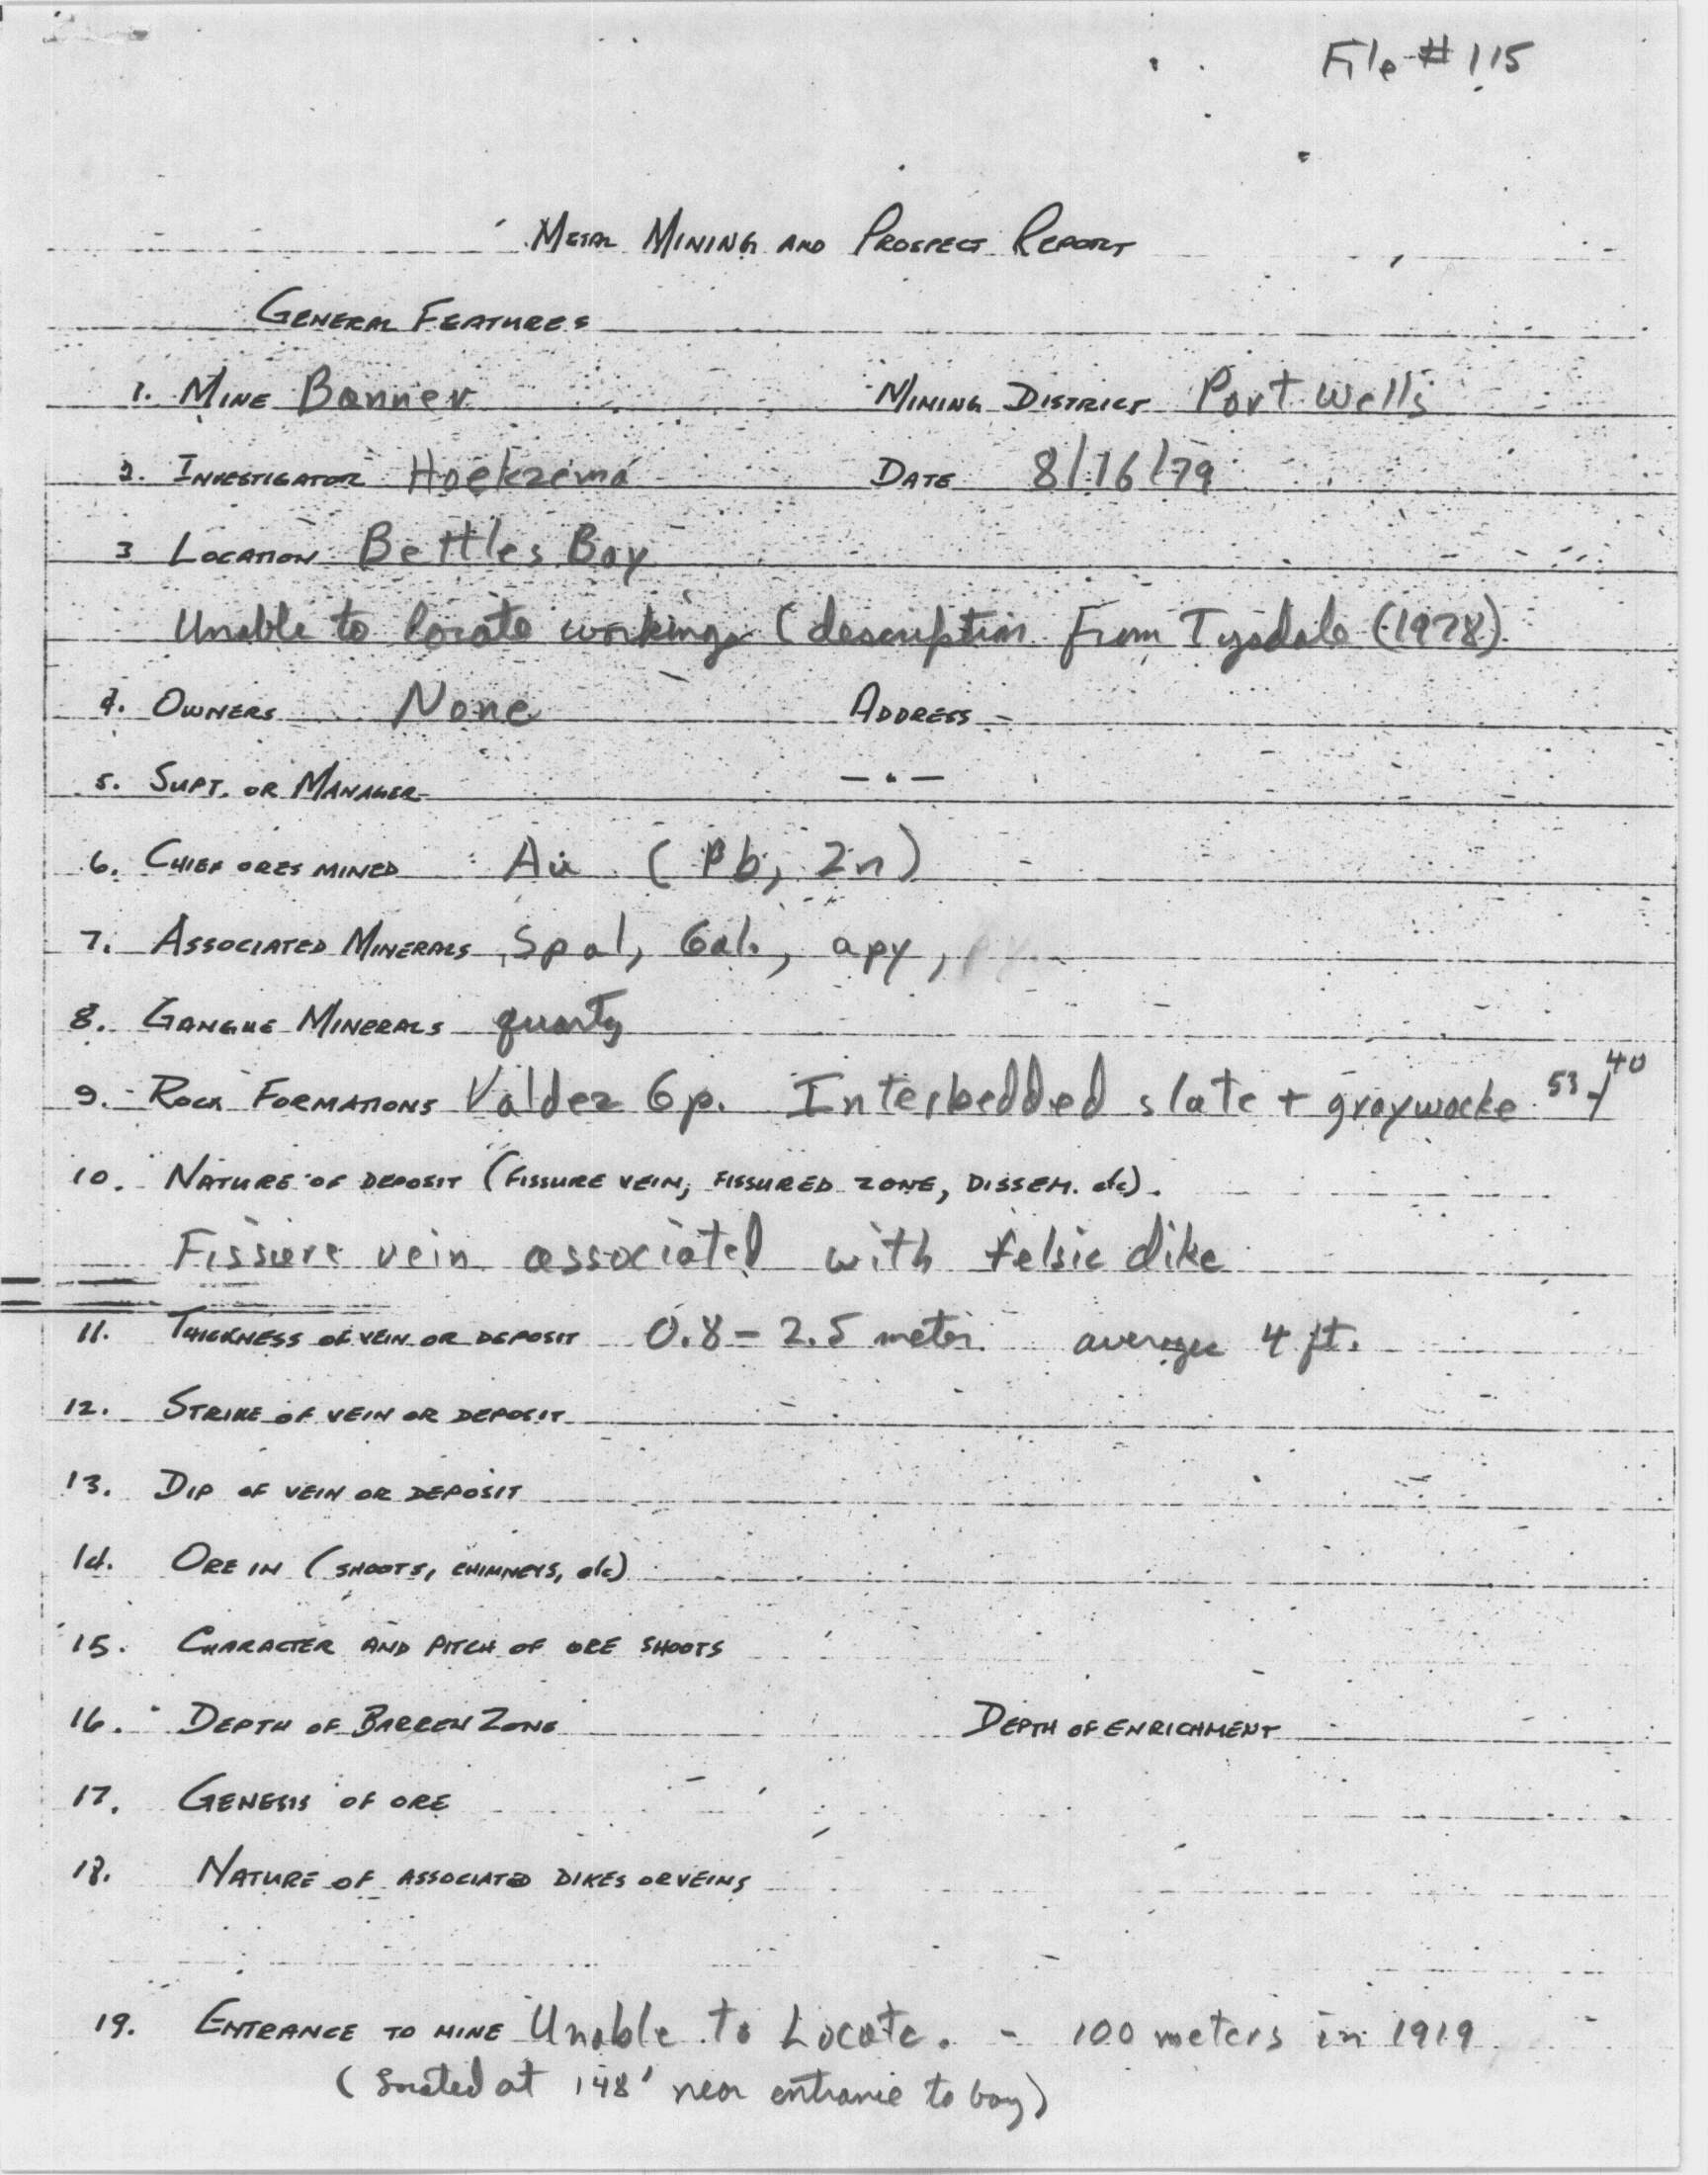 File # 115
METAL MINING AND PROSPECT REPORT
GENERAL FEATURES
1. MINE Banner MINING DISTRICT Port Wells
2. INVESTIGATOR Hoekzema DATE 8/16/79
3 LOCATION Bettles Bay
Unable to locate workings (description from Tysdale (1978)
4. OWNERS None ADDRESS -
5. SUPT. OR MANAGER - . -
6. CHIEF ORES MINED Au (Pb, Zn)
7. ASSOCIATED MINERALS Spal, Gal., apy, py
8. GANGUE MINERALS quartz
9. ROCK FORMATIONS Valdez Gp. Interbedded slate + graywacke 53 40
10. NATURE OF DEPOSIT (FISSURE VEIN, FISSURED ZONE, DISSEM. etc).
Fissure vein associated with felsic dike
11. THICKNESS OF VEIN OR DEPOSIT 0.8 - 2.5 meter average 4 ft.
12. STRIKE OF VEIN OR DEPOSIT
13. DIP OF VEIN OR DEPOSIT
14. ORE IN (SHOOTS, CHIMNEYS, etc)
15. CHARACTER AND PITCH OF ORE SHOOTS
16. DEPTH OF BARREN ZONE DEPTH OF ENRICHMENT
17. GENESIS OF ORE
18. NATURE OF ASSOCIATED DIKES OR VEINS
19. ENTRANCE TO MINE Unable to Locate. - 100 meters in 1919
(located at 148' near entrance to bay)